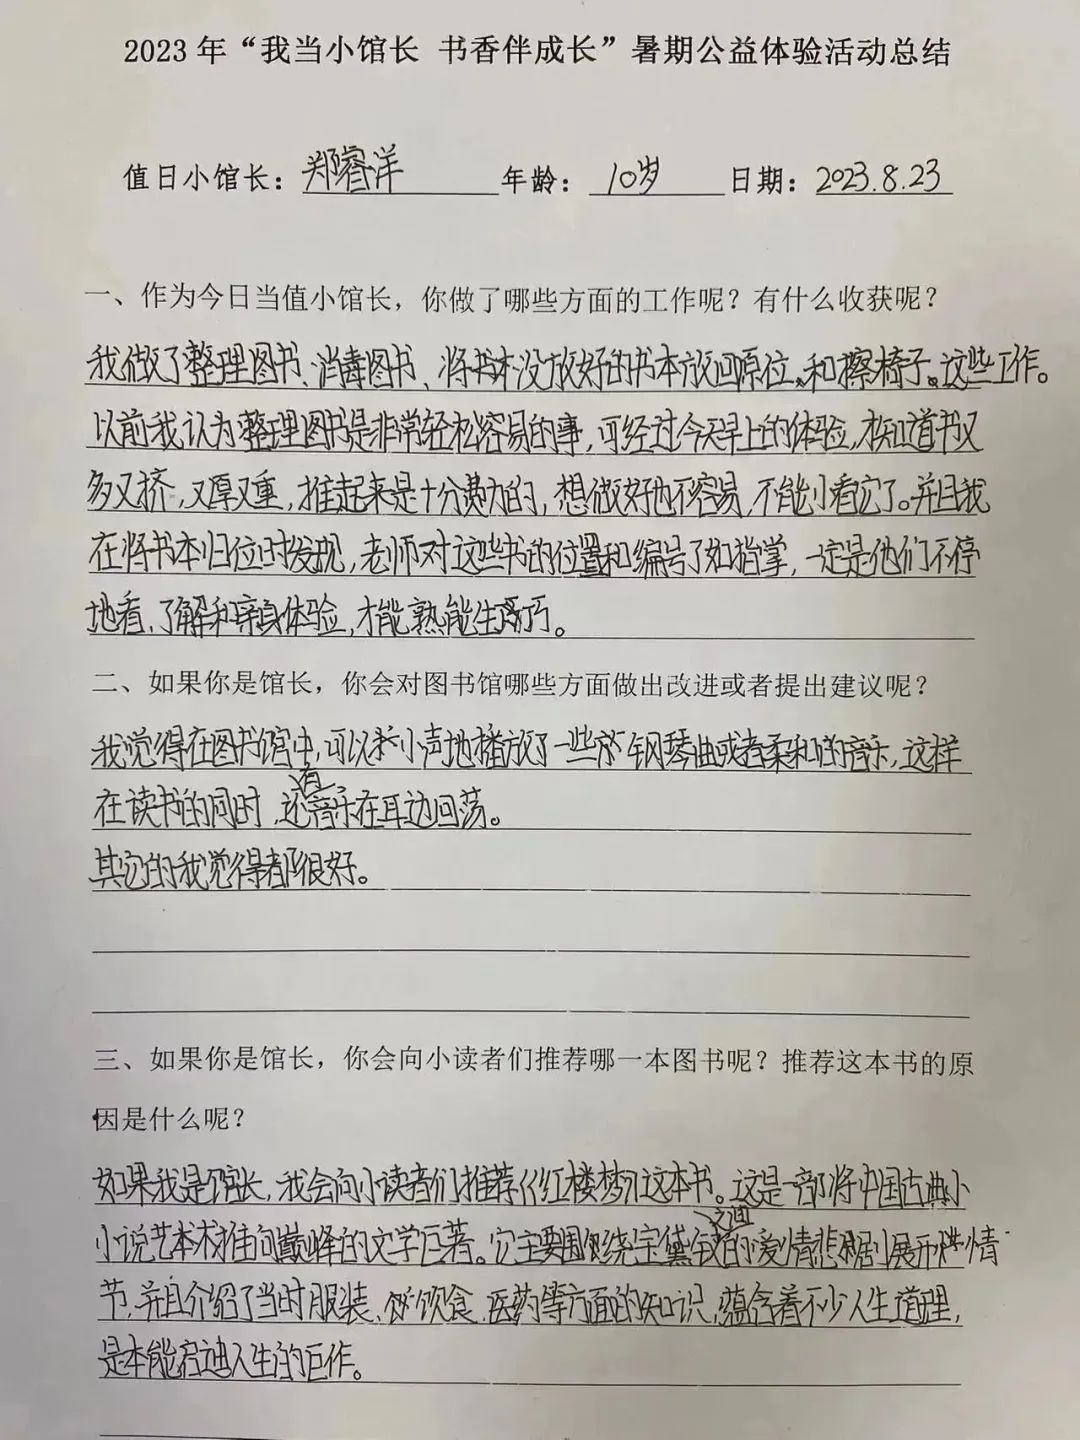 2023年“我当小馆长 书香伴成长”暑期公益体验活动总结
值日小馆长：郑睿洋 年龄：10岁 日期：2023.8.23
一、作为今日当值小馆长，你做了哪些方面的工作呢？有什么收获呢？
我做了整理图书、消毒图书、将书本没放好的书本放回原位、和擦椅子。这些工作。
以前我认为整理图书是非常轻松容易的事，可经过今天早上的体验，才知道书又
多又挤，又厚又重，推起来是十分费力的，想做好也不容易，不能小看它了。并且我
在将书本归位时发现，老师对这些书的位置和编号了如指掌，一定是他们不停
地看、了解和亲身体验，才能熟能生巧。
二、如果你是馆长，你会对图书馆哪些方面做出改进或者提出建议呢？
我觉得在图书馆中，可以小声地播放了一些钢琴曲或者柔和的音乐，这样
在读书的同时，还有音乐在耳边回荡。
其它的我觉得都很好。
三、如果你是馆长，你会向小读者们推荐哪一本图书呢？推荐这本书的原
因是什么呢？
如果我是馆长，我会向小读者们推荐《红楼梦》这本书。这是一部将中国古典小
小说艺术推向巅峰的文学巨著。它主要围绕宝黛钗之间的爱情悲剧展开情
节，并且介绍了当时服装、饮食、医药等方面的知识，蕴含着不少人生道理，
是本能启迪人生的巨作。